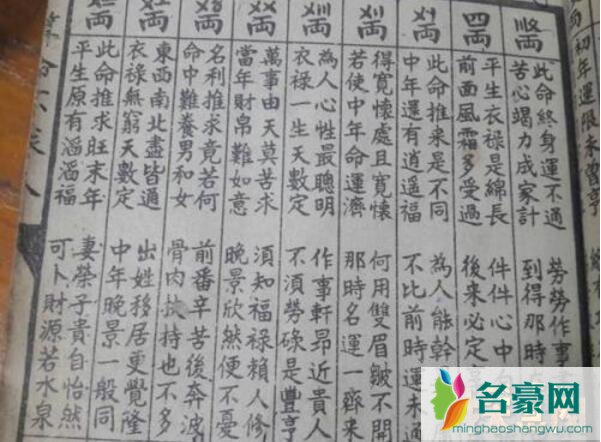 初年運限未曾亨
此命終身運不通
苦心竭力成家計
勞勞作事
到得那時
四兩
平生衣祿是綿長
前面風霜多受過
件件心中
後來必定
此命推來是不同
中年還有逍遙
為人能幹
不比前時運未通
得寬懷處且寬懷
若使中年命運濟
何用雙眉皺不開
那時名運一齊來
為人心性最聰明
衣祿一生天數定
作事軒昂近貴人
不須勞碌是豐亨
萬事由天莫苦求
當年財帛難如意
須知福祿賴人修
晚景欣然便不憂
名利推求竟若何
命中難養男和女
前番辛苦後奔波
骨肉扶持也不多
東西南北盡皆通
衣祿無窮天數定
出姓移居更覺隆
中年晚景一般同
此命推求旺末年
平生原有滔滔福
妻榮子貴自怡然
可卜財源若水泉
名豪网
minghaoshangwu.com